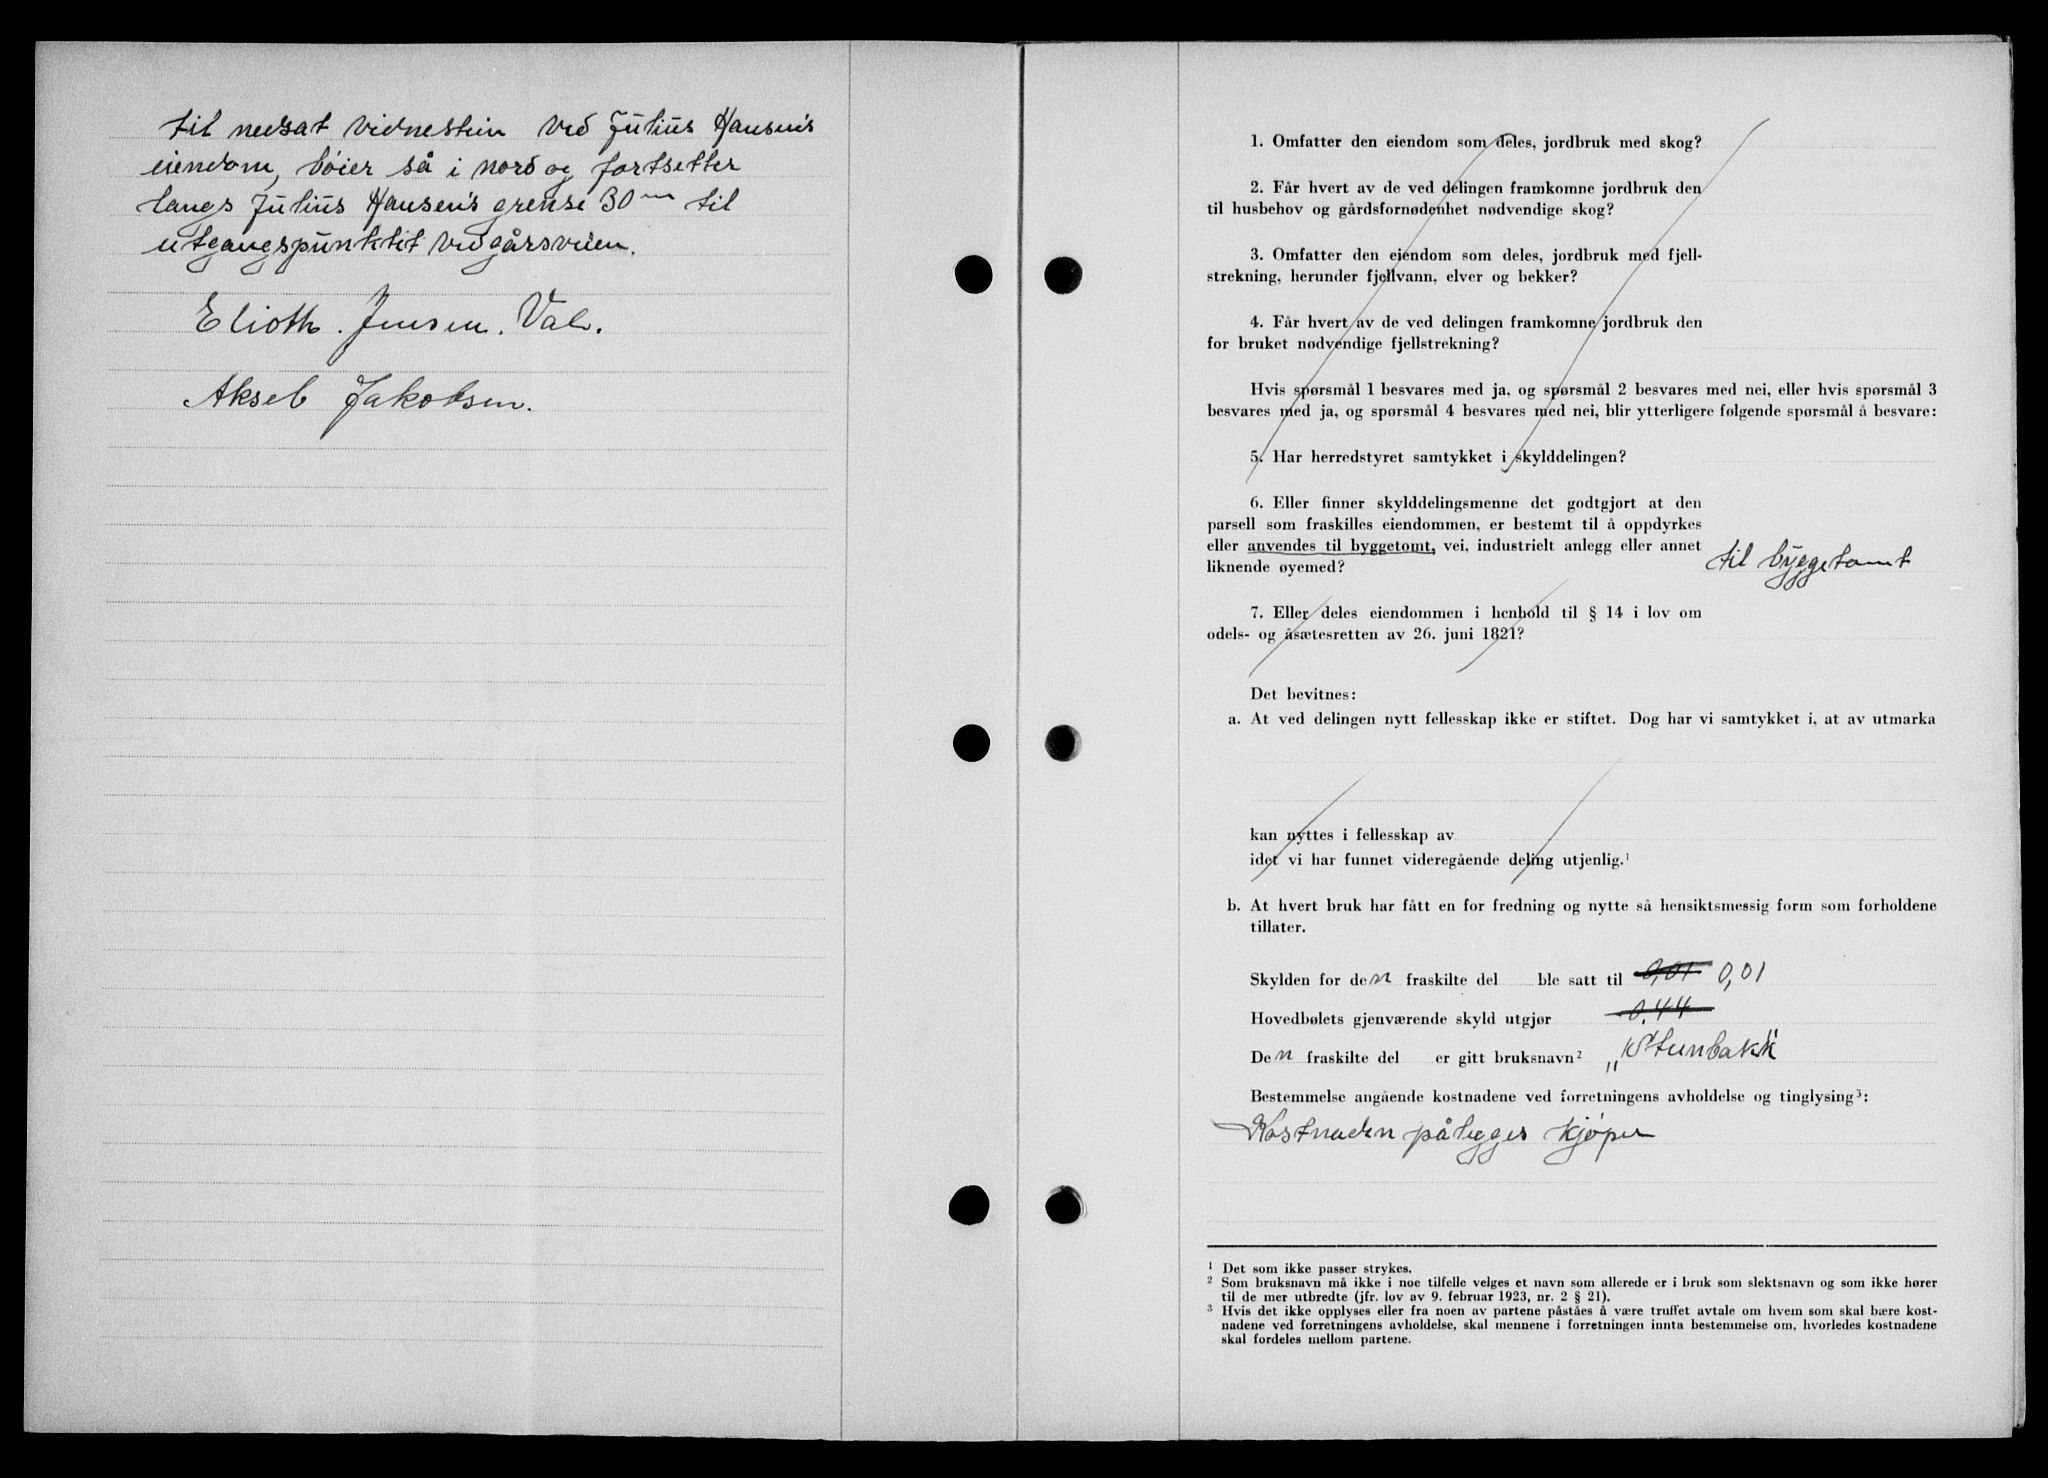 til nedsat vidnestein ved Julius Hansen's
eiendom, bøier så i nord og fortsetter
langs Julius Hansen's grense 30 m til
utgangspunktet ved gårsveien.
Elioth. Jensen. Val.
Aksel Jakobsen.
1. Omfatter den eiendom som deles, jordbruk med skog?
2. Får hvert av de ved delingen framkomne jordbruk den
til husbehov og gårdsfornødenhet nødvendige skog?
3. Omfatter den eiendom som deles, jordbruk med fjell-
strekning, herunder fjellvann, elver og bekker?
4. Får hvert av de ved delingen framkomne jordbruk den
for bruket nødvendige fjellstrekning?
Hvis spørsmål 1 besvares med ja, og spørsmål 2 besvares med nei, eller hvis spørsmål 3
besvares med ja, og spørsmål 4 besvares med nei, blir ytterligere følgende spørsmål å besvare:
5. Har herredstyret samtykket i skylddelingen?
6. Eller finner skylddelingsmenne det godtgjort at den
parsell som fraskilles eiendommen, er bestemt til å oppdyrkes
eller anvendes til byggetomt, vei, industrielt anlegg eller annet
liknende øyemed? til byggetomt
7. Eller deles eiendommen i henhold til § 14 i lov om
odels- og åsætesretten av 26. juni 1821?
Det bevitnes:
a. At ved delingen nytt fellesskap ikke er stiftet. Dog har vi samtykket i, at av utmarka
kan nyttes i fellesskap av
idet vi har funnet videregående deling utjenlig.¹
b. At hvert bruk har fått en for fredning og nytte så hensiktsmessig form som forholdene
tillater.
Skylden for den fraskilte del ble satt til 0,01 0,01
Hovedbølets gjenværende skyld utgjør 0.44
Den fraskilte del er gitt bruksnavn² „Stunbakk"
Bestemmelse angående kostnadene ved forretningens avholdelse og tinglysing³:
Kostnaden pålegges kjøper
¹ Det som ikke passer strykes.
² Som bruksnavn må ikke i noe tilfelle velges et navn som allerede er i bruk som slektsnavn og som ikke hører
til de mer utbredte (jfr. lov av 9. februar 1923, nr. 2 § 21).
³ Hvis det ikke opplyses eller fra noen av partene påståes å være truffet avtale om hvem som skal bære kost-
nadene ved forretningens avholdelse, skal mennene i forretningen innta bestemmelse om, hvorledes kostnadene
skal fordeles mellom partene.